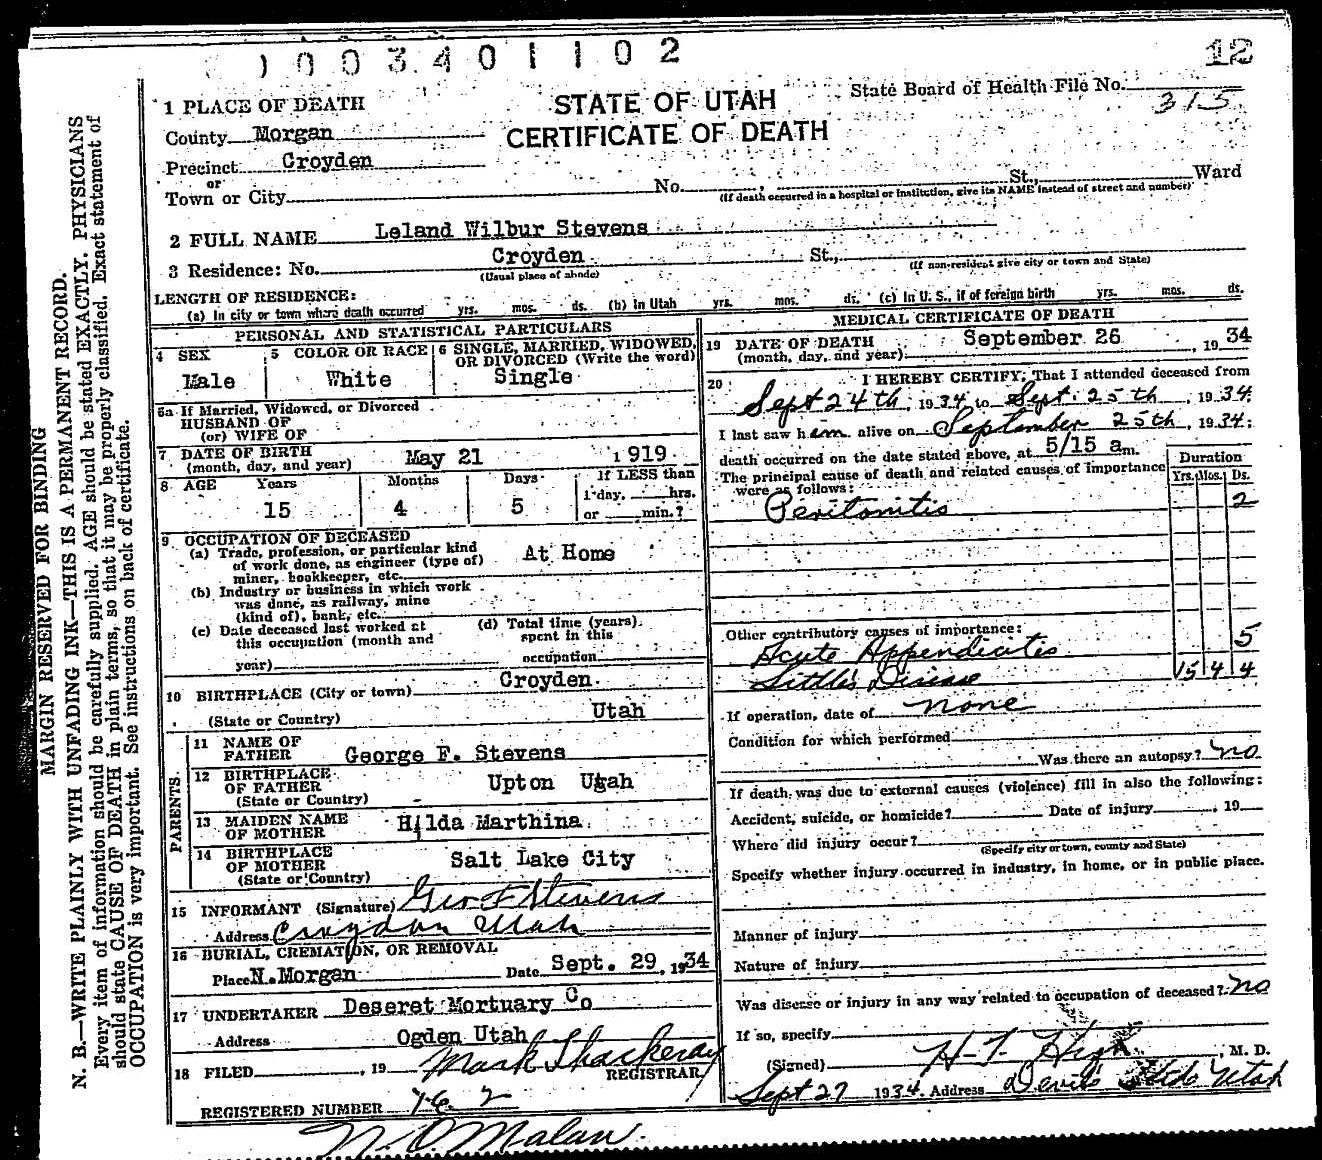 1003401102
12
State Board of Health File No. 315
STATE OF UTAH
CERTIFICATE OF DEATH
1 PLACE OF DEATH
County Morgan
Precinct Croyden
or
Town or City No. St., Ward
(If death occurred in a hospital or institution, give its NAME instead of street and number)
2 FULL NAME Leland Wilbur Stevens
3 Residence: No. Croyden St.,
(Usual place of abode) (If non-resident give city or town and State)
LENGTH OF RESIDENCE:
(a) In city or town where death occurred yrs. mos. ds. (b) in Utah yrs. mos. ds. (c) In U. S., if of foreign birth yrs. mos. ds.
PERSONAL AND STATISTICAL PARTICULARS
4 SEX 5 COLOR OR RACE 6 SINGLE, MARRIED, WIDOWED,
OR DIVORCED (Write the word)
Male White Single
6a If Married, Widowed, or Divorced
HUSBAND OF
(or) WIFE OF
7 DATE OF BIRTH
(month, day, and year) May 21 1919
8 AGE Years Months Days If LESS than
1 day, hrs.
or min.?
15 4 5
9 OCCUPATION OF DECEASED
(a) Trade, profession, or particular kind
of work done, as engineer (type of) At Home
miner, bookkeeper, etc.
(b) Industry or business in which work
was done, as railway, mine
(kind of), bank, etc.
(c) Date deceased last worked at
this occupation (month and
year)
(d) Total time (years)
spent in this
occupation
10 BIRTHPLACE (City or town) Croyden
(State or Country) Utah
PARENTS
11 NAME OF
FATHER George F. Stevens
12 BIRTHPLACE
OF FATHER Upton Utah
(State or Country)
13 MAIDEN NAME
OF MOTHER Hilda Marthina
14 BIRTHPLACE
OF MOTHER Salt Lake City
(State or Country)
15 INFORMANT (Signature) Geo F Stevens
Address Croydon Utah
16 BURIAL, CREMATION, OR REMOVAL
Place N. Morgan Date Sept. 29, 1934
17 UNDERTAKER Deseret Mortuary Co
Address Ogden Utah
18 FILED , 19 Mark Thackeray
REGISTRAR
REGISTERED NUMBER
N. O. Malan
MEDICAL CERTIFICATE OF DEATH
19 DATE OF DEATH
(month, day, and year) September 26, 1934
20 I HEREBY CERTIFY, That I attended deceased from
Sept 24th, 1934, to Sept. 25th, 1934.
I last saw him alive on September 25th, 1934;
death occurred on the date stated above, at 5/15 a m.
The principal cause of death and related causes of importance
were as follows:
Duration
Yrs. Mos. Ds.
Peritonitis 2
Other contributory causes of importance:
Acute Appendicitis 5
Little's Disease 15 4 4
If operation, date of none
Condition for which performed
Was there an autopsy? no
If death was due to external causes (violence) fill in also the following:
Accident, suicide, or homicide? Date of injury , 19
Where did injury occur?
(Specify city or town, county and State)
Specify whether injury occurred in industry, in home, or in public place.
Manner of injury
Nature of injury
Was disease or injury in any way related to occupation of deceased? no
If so, specify
(Signed) , M. D.
Sept 27 1934. Address Devil's Slide Utah
MARGIN RESERVED FOR BINDING
N. B.—WRITE PLAINLY WITH UNFADING INK—THIS IS A PERMANENT RECORD.
Every item of information should be carefully supplied. AGE should be stated EXACTLY. PHYSICIANS
should state CAUSE OF DEATH in plain terms, so that it may be properly classified. Exact statement of
OCCUPATION is very important. See instructions on back of certificate.